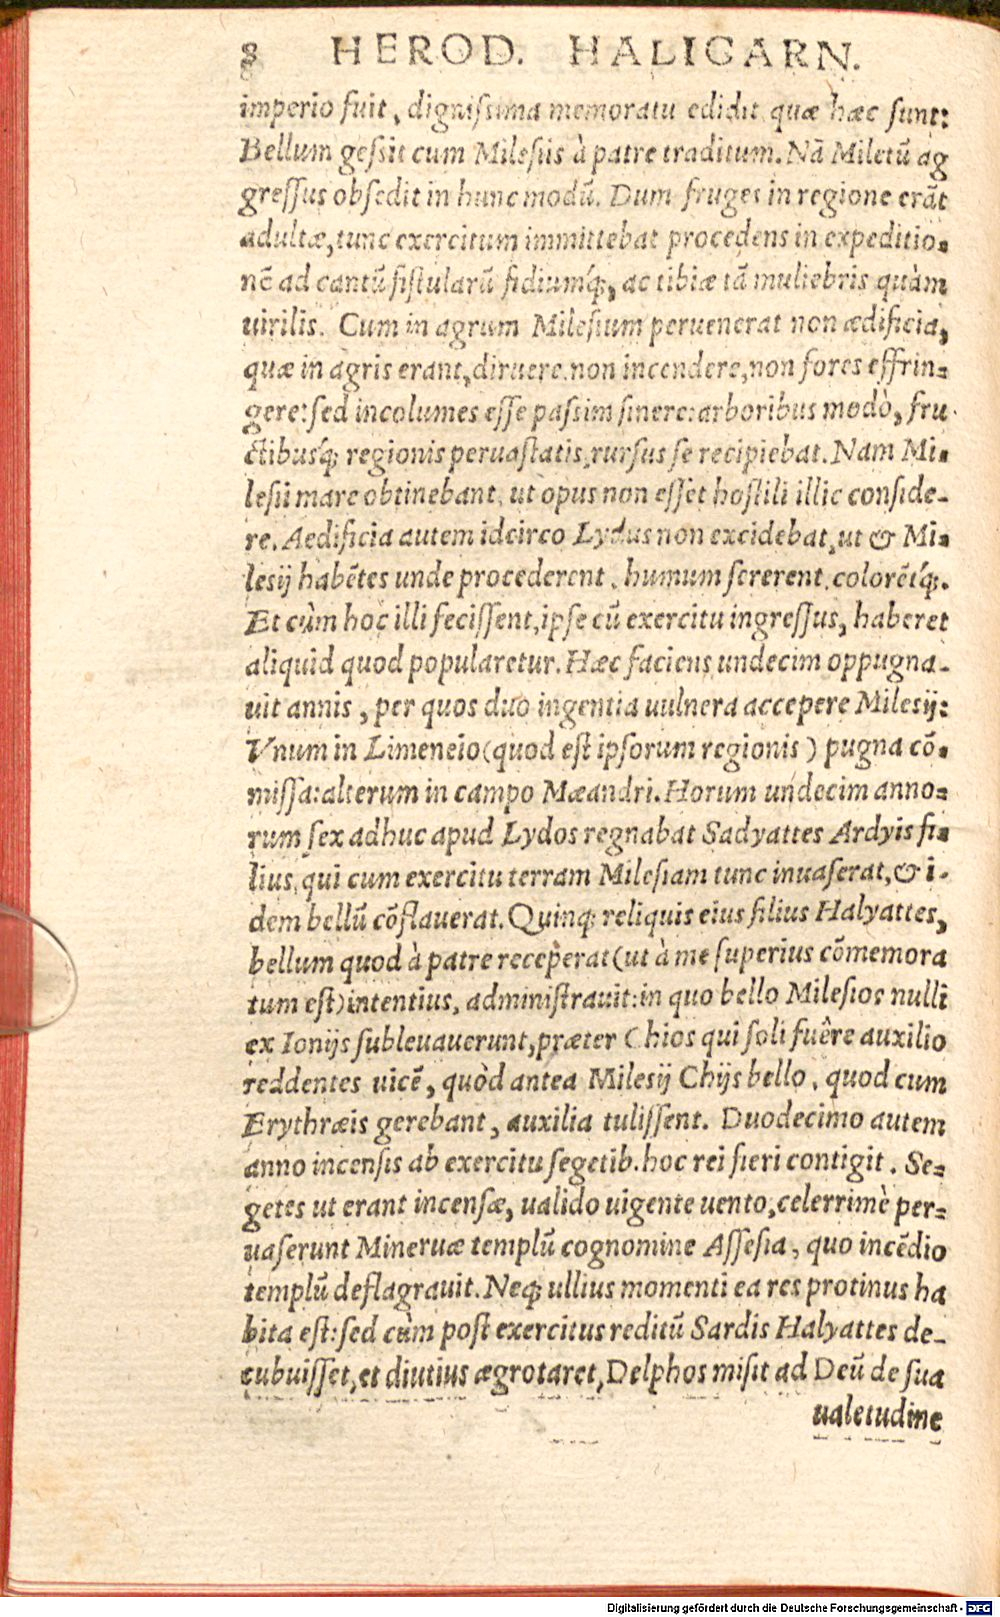 8 HEROD. HALIGARN.
imperio fuit, dignissima memoratu edidit quæ hæc sunt:
Bellum gessit cum Milesiis à patre traditum. Nā Miletū ag
gressus obsedit in hunc modū. Dum fruges in regione erāt
adultæ, tunc exercitum immittebat procedens in expeditio-
nē ad cantū fistularū fidiumq́;, ac tibiæ tā muliebris quàm
uirilis. Cum in agrum Milesium peruenerat non ædificia,
quæ in agris erant, diruere, non incendere, non fores effrin-
gere: sed incolumes esse passim sinere: arboribus modò, fru-
ctibusq́; regionis peruastatis, rursus se recipiebat. Nam Mi-
lesii mare obtinebant, ut opus non esset hostili illic conside-
re. Aedificia autem idcirco Lydus non excidebat, ut & Mi-
lesij habētes unde procederent, humum sererent, colorētq́;.
Et cùm hoc illi fecissent, ipse cū exercitu ingressus, haberet
aliquid quod popularetur. Hæc faciens undecim oppugna-
uit annis, per quos duo ingentia uulnera accepere Milesij:
Vnum in Limeneio (quod est ipsorum regionis) pugna cō-
missa: alterum in campo Mæandri. Horum undecim anno-
rum sex adhuc apud Lydos regnabat Sadyattes Ardyis fi-
lius, qui cum exercitu terram Milesiam tunc inuaserat, & i-
dem bellū cōflauerat. Quinq; reliquis eius filius Halyattes,
bellum quod à patre receperat (ut à me superius cōmemora
tum est) intentius, administrauit: in quo bello Milesios nulli
ex Ionijs subleuauerunt, præter Chios qui soli fuêre auxilio
reddentes uicē, quòd antea Milesij Chijs bello, quod cum
Erythræis gerebant, auxilia tulissent. Duodecimo autem
anno incensis ab exercitu segetib. hoc rei fieri contigit. Se-
getes ut erant incensæ, ualido uigente uento, celerrimè per-
uaserunt Mineruæ templū cognomine Assesia, quo incēdio
templū deflagrauit. Neq; ullius momenti ea res protinus ha
bita est: sed cùm post exercitus reditū Sardis Halyattes de-
cubuisset, et diutius ægrotaret, Delphos misit ad Deū de sua
ualetudine
Digitalisierung gefördert durch die Deutsche Forschungsgemeinschaft - DFG